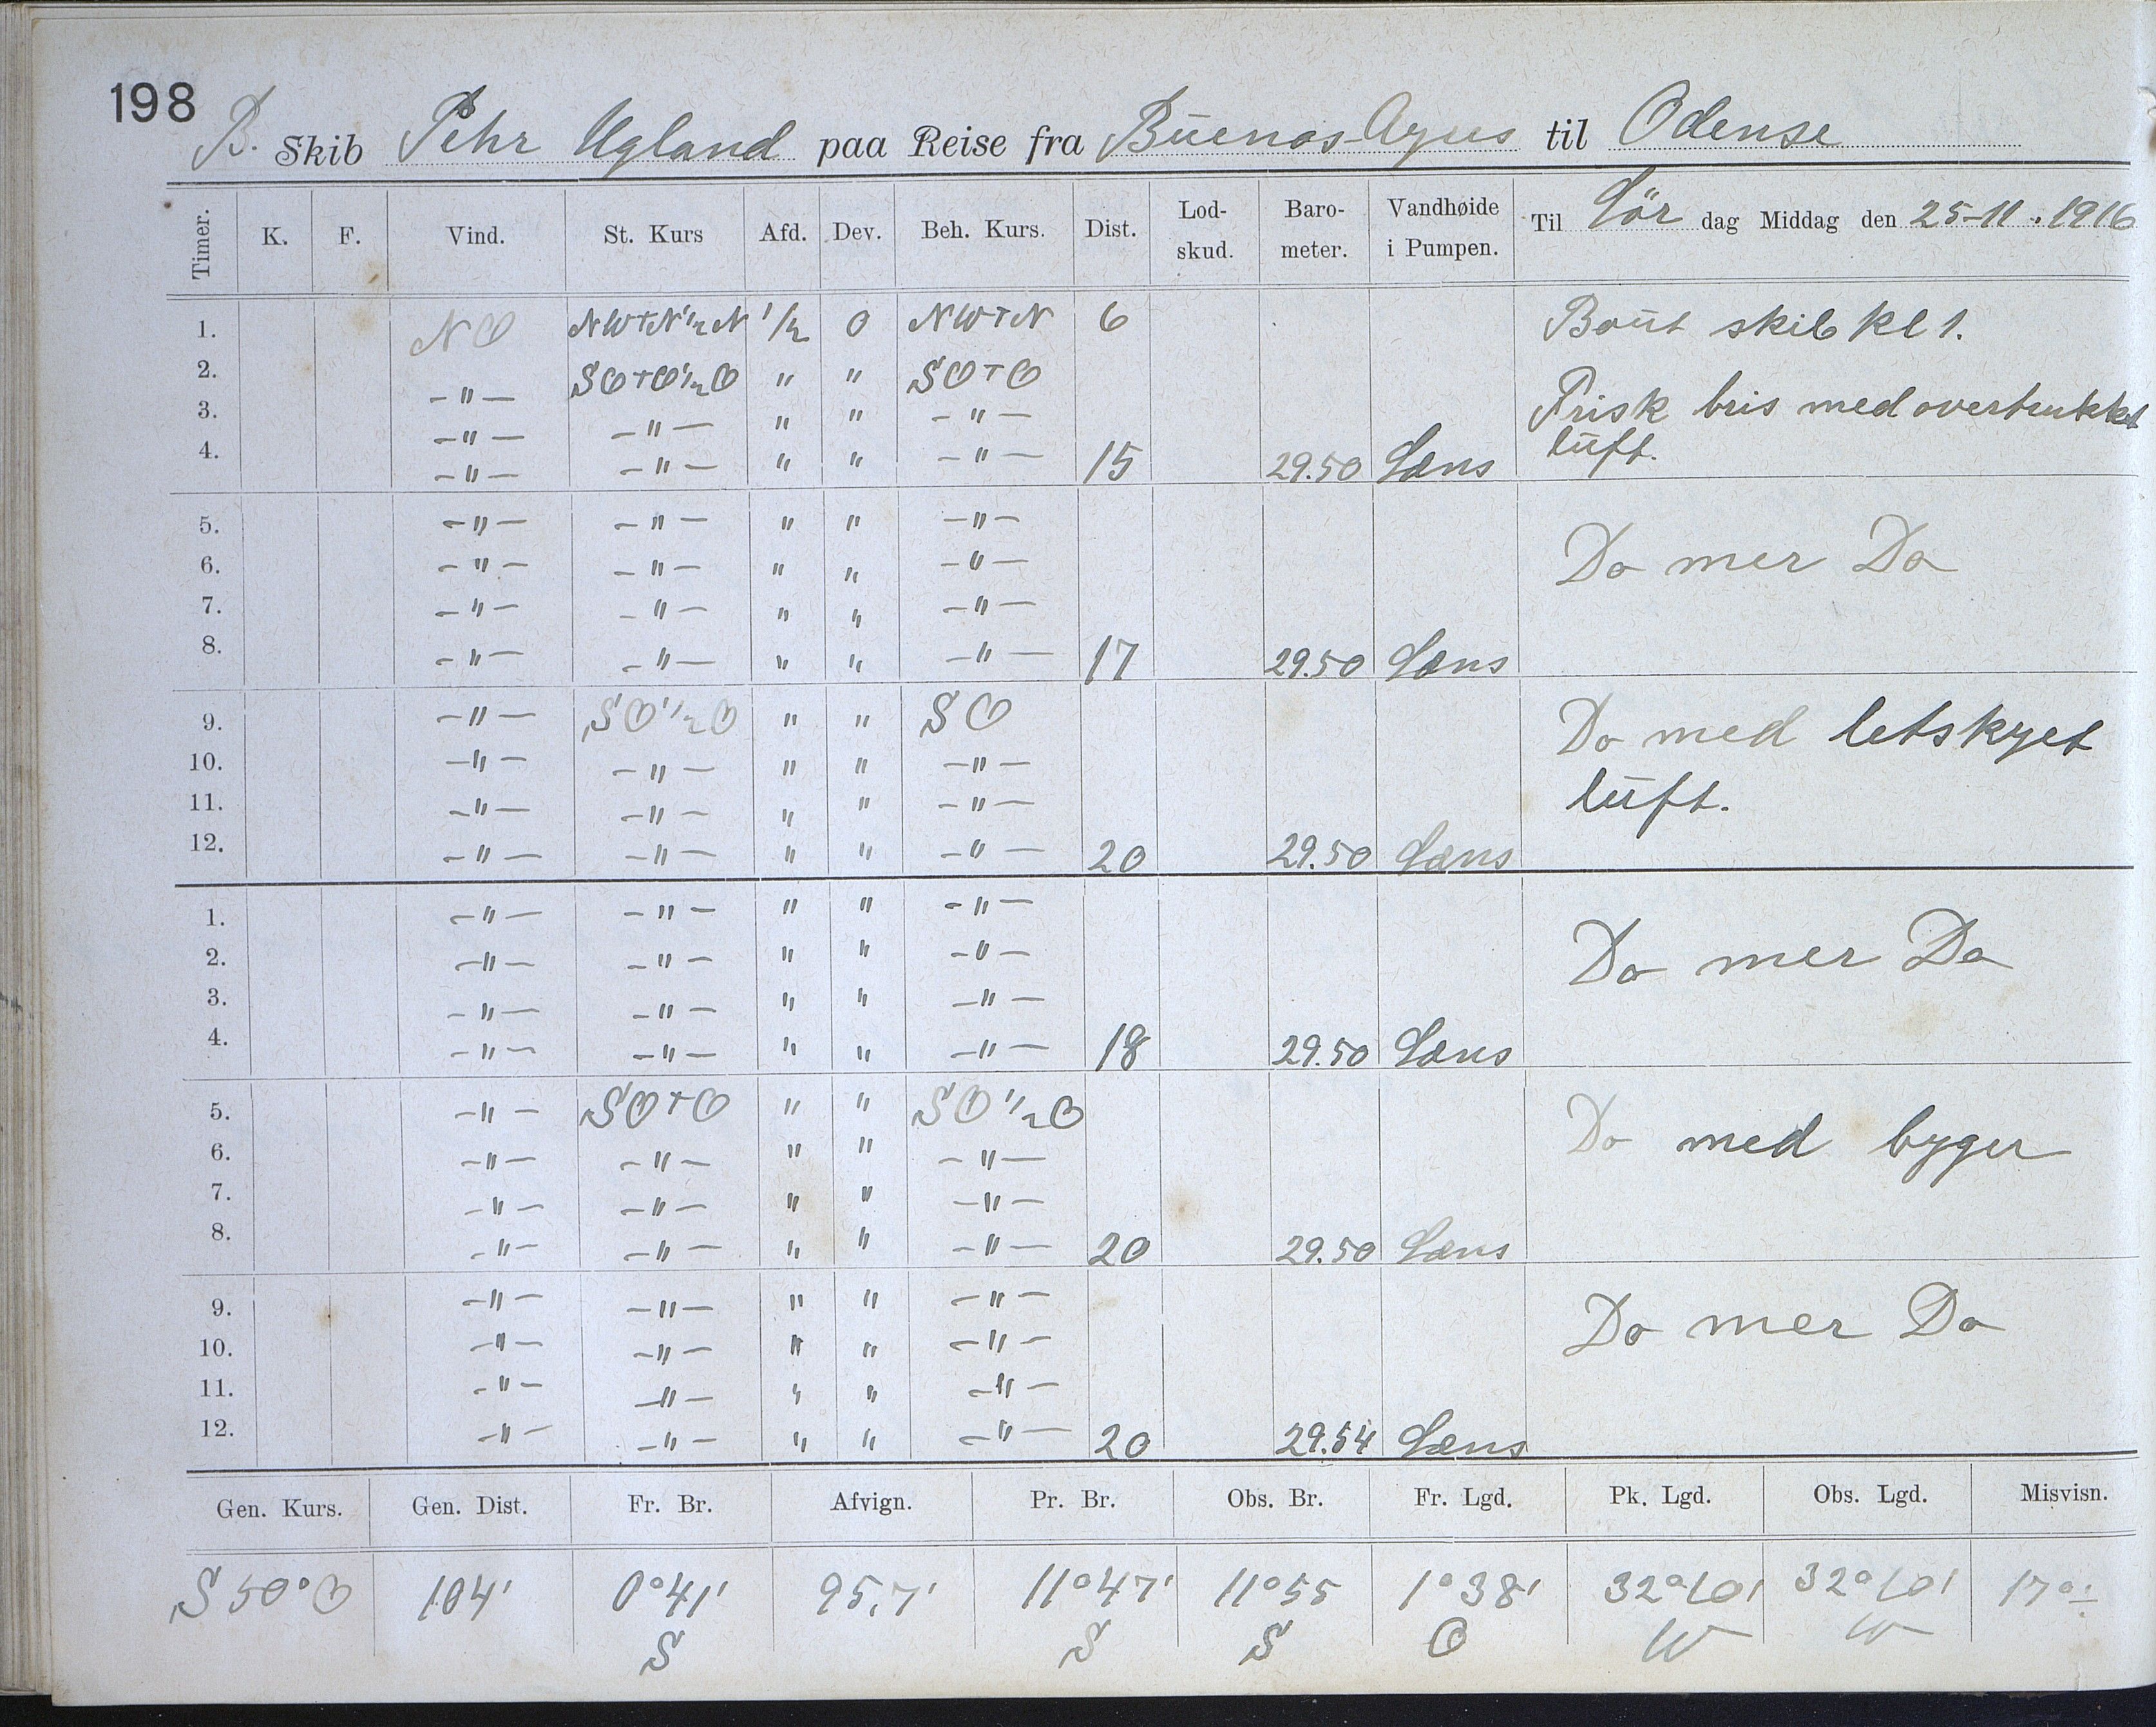 198
B. Skib Pehr Ugland paa Reise fra Buenos-Ayres til Odense
Timer. K. F. Vind. St. Kurs Afd. Dev. Beh. Kurs. Dist. Lod-skud. Baro-meter. Vandhøide i Pumpen. Til Lör dag Middag den 25-11.1916
1. NO NWTN½N ½ 0 NWTN 6 Bout skib kl 1.
2. -"- SOTO½O " " SOTO
3. -"- -"- " " -"- Frisk bris med overtrukket
4. -"- -"- " " -"- 15 29.50 Læns luft.
5. -"- -"- " " -"-
6. -"- -"- " " -"- Do mer Do
7. -"- -"- " " -"-
8. -"- -"- " " -"- 17 29.50 Læns
9. -"- SO½O " " SO Do med letskyet
10. -"- -"- " " -"-
11. -"- -"- " " -"- luft.
12. -"- -"- " " -"- 20 29.50 Læns
1. -"- -"- " " -"-
2. -"- -"- " " -"- Do mer Do
3. -"- -"- " " -"-
4. -"- -"- " " -"- 18 29.50 Læns
5. -"- SOTO " " SO½O
6. -"- -"- " " -"- Do med byger
7. -"- -"- " " -"-
8. -"- -"- " " -"- 20 29.50 Læns
9. -"- -"- " " -"-
10. -"- -"- " " -"- Do mer Do
11. -"- -"- " " -"-
12. -"- -"- " " -"- 20 29.54 Læns
Gen. Kurs. Gen. Dist. Fr. Br. Afvign. Pr. Br. Obs. Br. Fr. Lgd. Pk. Lgd. Obs. Lgd. Misvisn.
S 50° O 104' 0°41' 95,7' 11°47' 11°55 1°38' 32°10' 32°10' 17°÷
S S S O W W